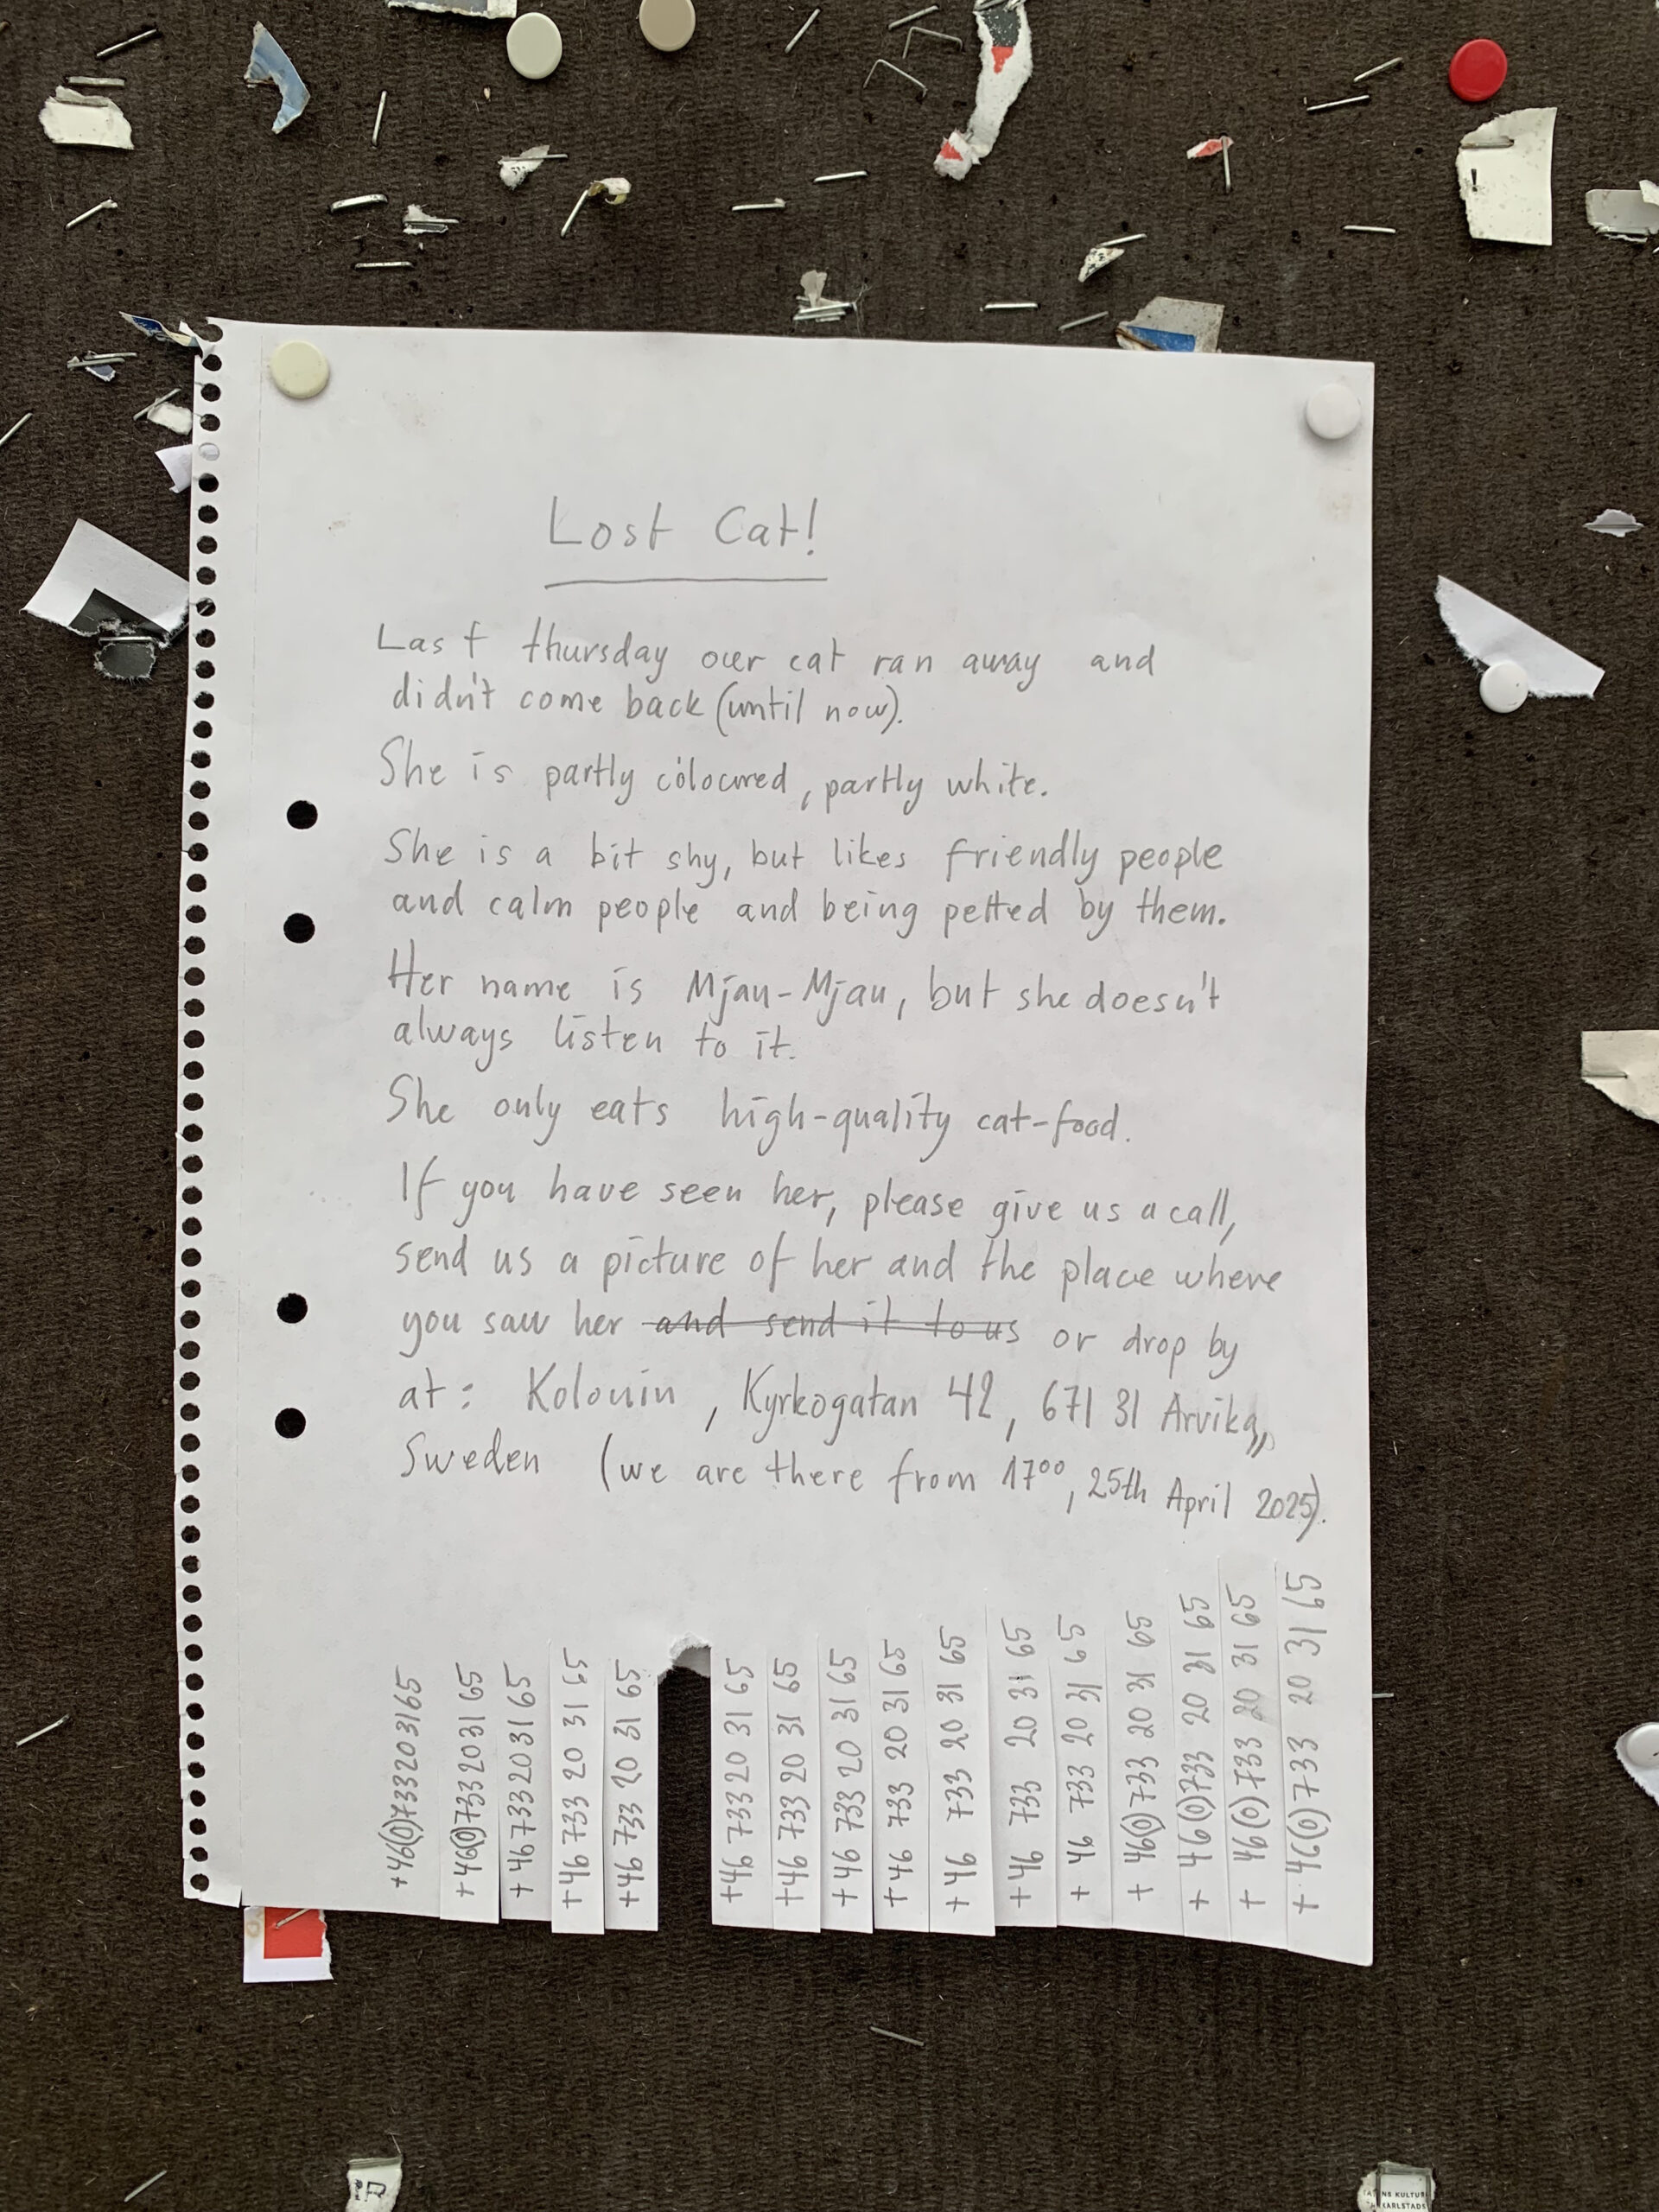 Lost Cat!
Last thursday our cat ran away and
didn't come back (until now).
She is partly coloured, partly white.
She is a bit shy, but likes friendly people
and calm people and being petted by them.
Her name is Mjau-Mjau, but she doesn't
always listen to it.
She only eats high-quality cat-food.
If you have seen her, please give us a call,
send us a picture of her and the place where
you saw her and send it to us or drop by
at: Kolonin, Kyrkogatan 42, 671 31 Arvika,
Sweden (we are there from 17⁰⁰, 25th April 2025).
+46(0)733203165
+46(0)733 2031 65
+46 733 20 31 65
+46 733 20 31 65
+46 733 20 31 65
+46 733 20 31 65
+46 733 20 31 65
+46 733 20 31 65
+46 733 20 31 65
+46 733 20 31 65
+46 733 20 31 65
+46 733 20 31 65
+46(0)733 20 31 65
+46(0)733 20 31 65
+46(0)733 20 31 65
+46(0)733 20 31 65
NS KULTUR
KARLSTADS